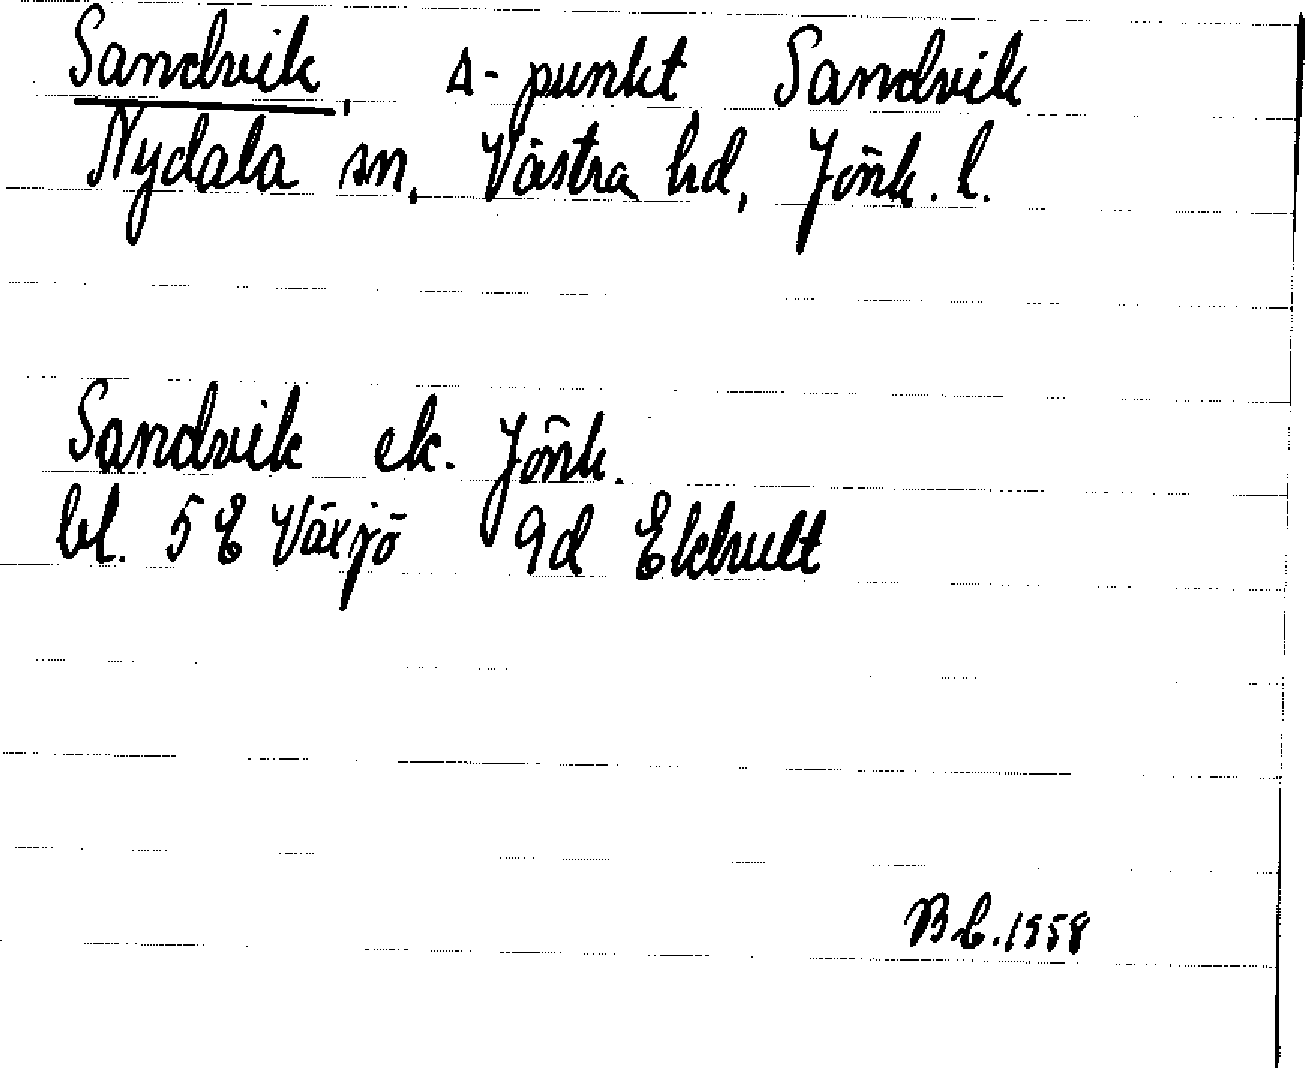 Sandvik, Δ-punkt Sandvik
Nydala sn, Västra hd, Jönk. l.
Sandvik ek. Jönk.
bl. 5E Växjö 9d Ekhult
1958